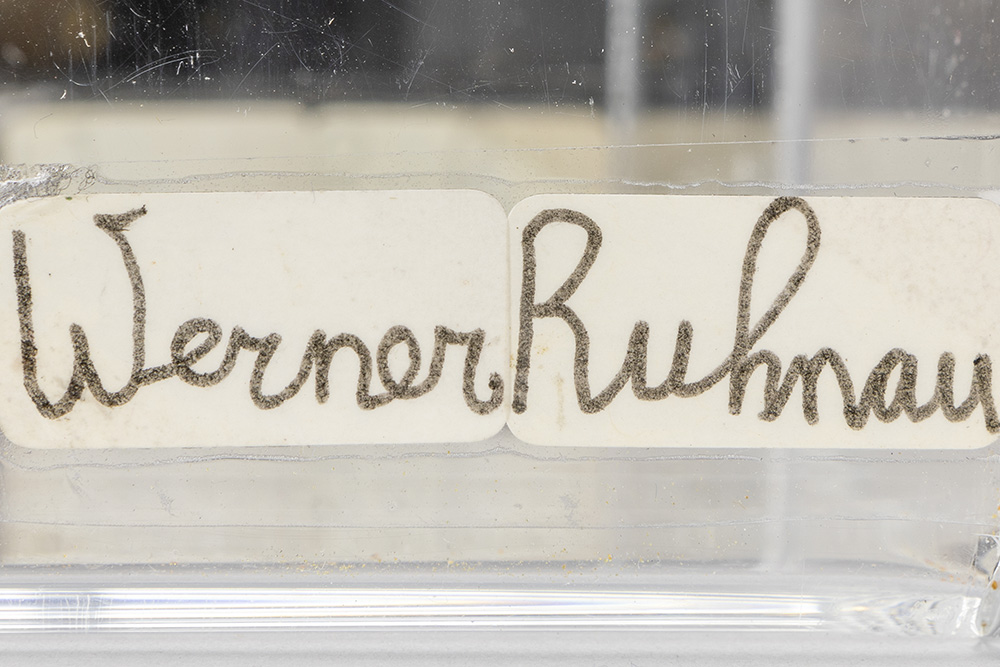 Werner Ruhnau